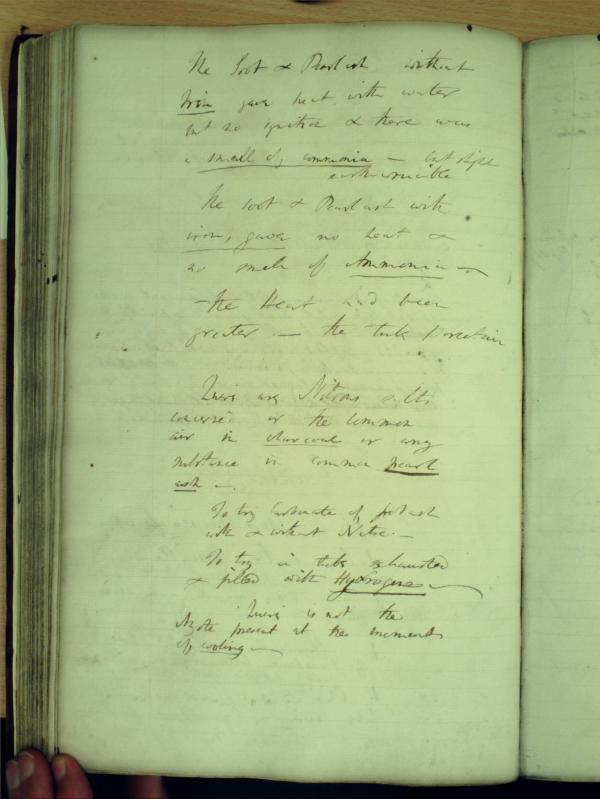 The Soot & Pearlash without
Iron gave heat with water
but no ignition & there was
a smell of ammonia — but slight
earthen crucible
The soot & Pearlash with
iron, gave no heat &
no smell of Ammonia —
The Heat had been
greater — the tube Porcelain
Quere are Nitrous salts
concerned or the common
air in charcoal or any
substance in common pearl
ash —.
To try Carbonate of potash
with & without Nitre. —
To try in tube exhausted
& filled with Hydrogene —
Quere is not the
Azote present at the moments
of cooling —